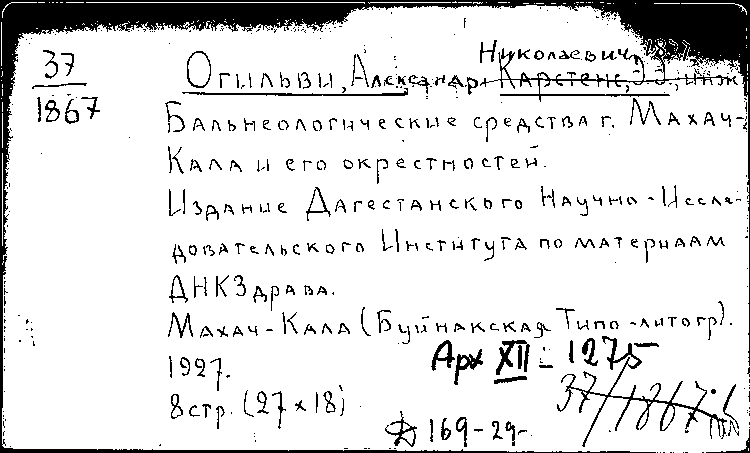 37
1867
Николаевич
Огильви, Александр Карстенс, Э.Э., инж
Бальнеологические средства г. Махач-
Кала и его окрестностей.
Издание Дагестанского Научно-Иссле-
довательского Института по материаам
ДНКЗдрава.
Махач-Кала (Буйнакская Типо-литогр).
1927.
Арх XII - 1275
8 стр. (27 х 18)
37/1867
169-29-